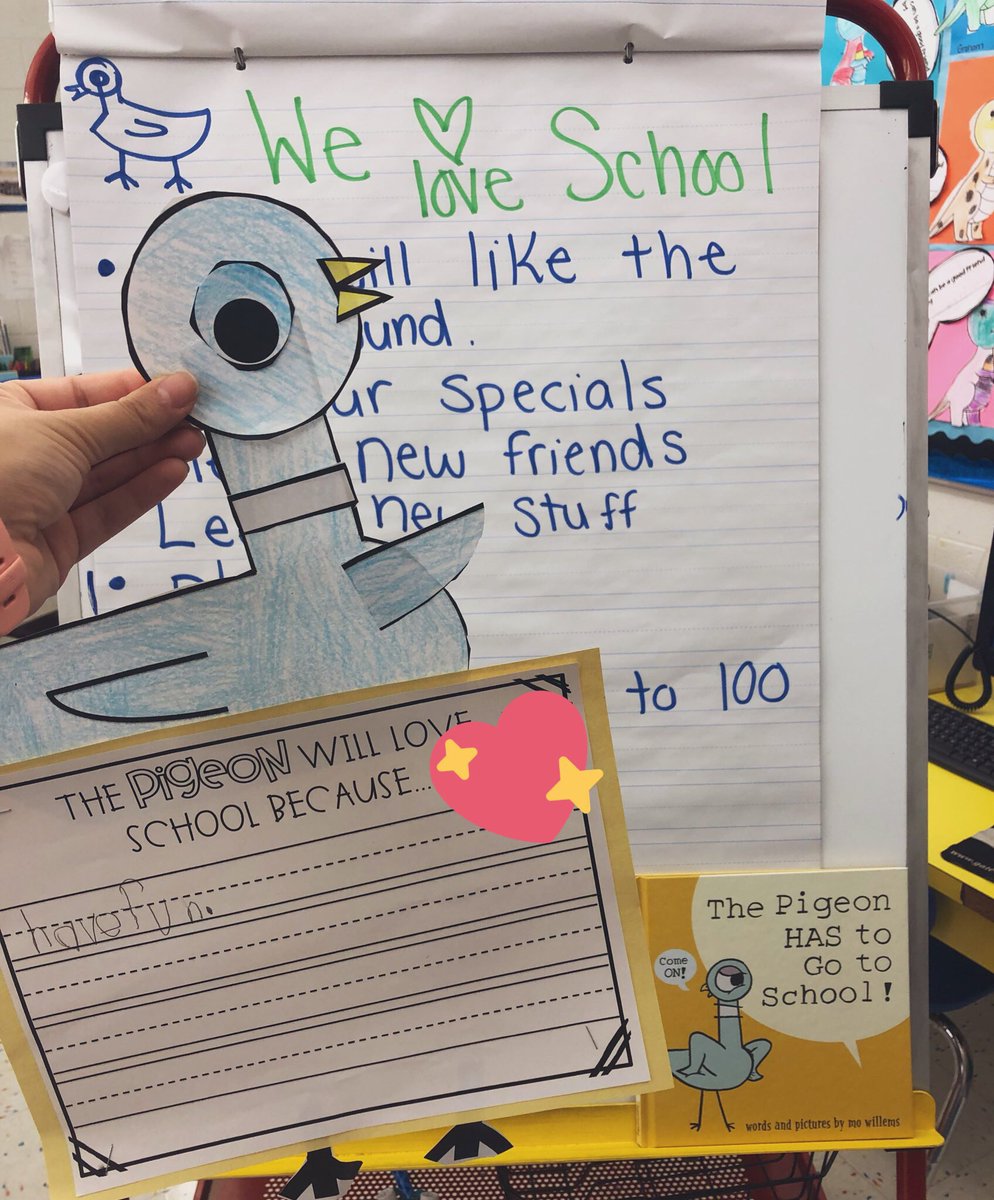 We love School
like the
specials
new friends
stuff
to 100
THE PIGEON WILL LOVE
SCHOOL BECAUSE...
have fun.
The Pigeon
HAS to
Go to
School!
Come
ON!
words and pictures by mo willems